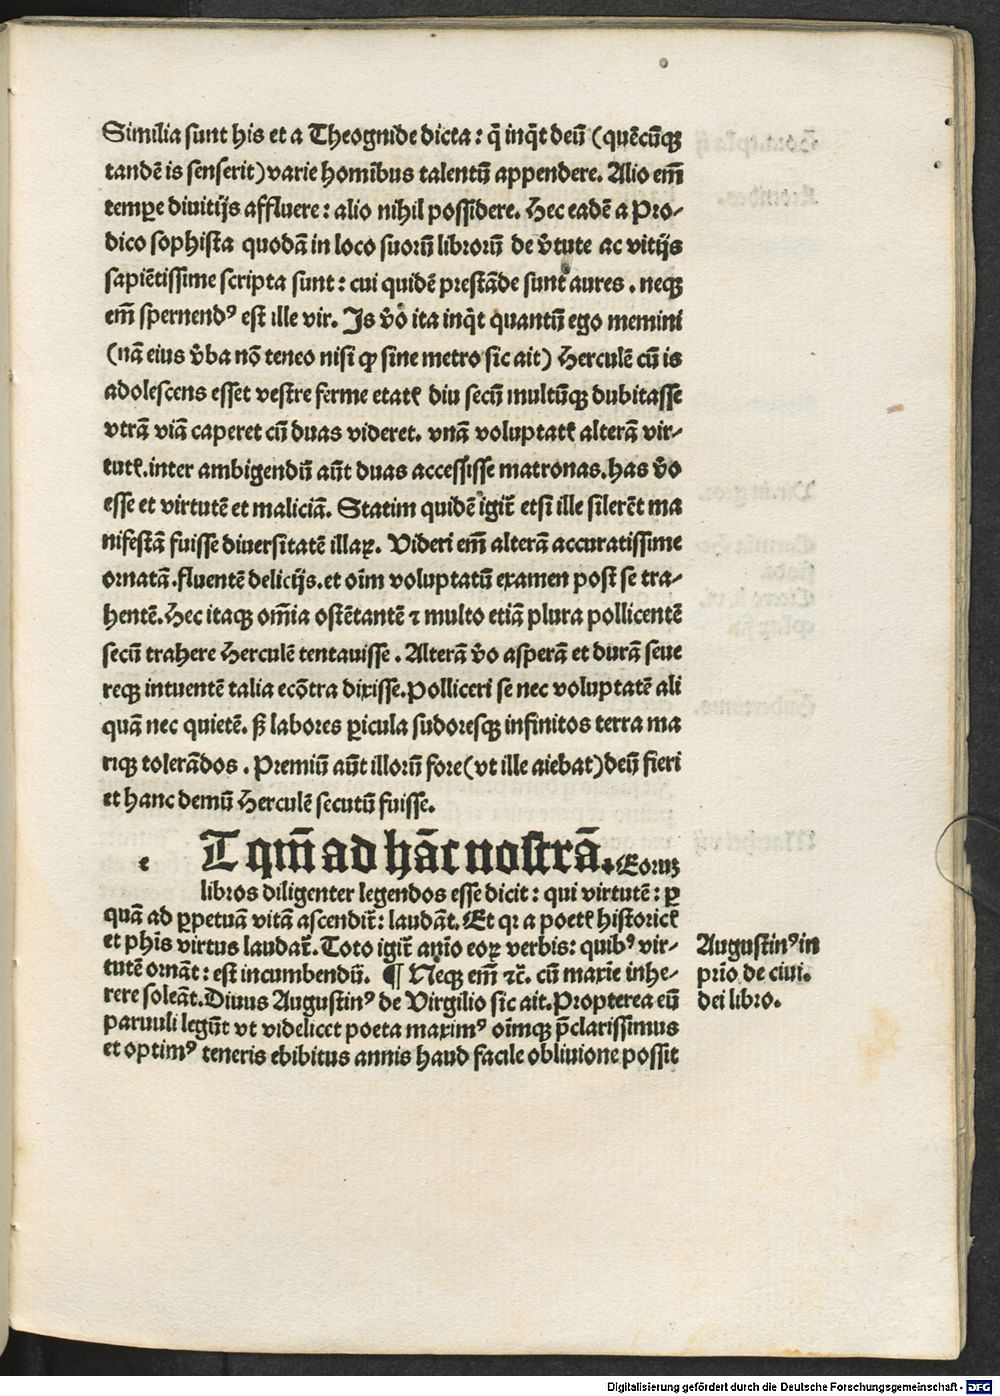 Similia sunt his et a Theognide dicta: q̃ inq̃t deũ (quẽcũqꝫ
tandẽ is senserit) varie homĩbus talentũ appendere. Alio em̃
temp̱e diuitijs affluere: alio nihil possidere. Hec eadẽ a Pro-
dico sophista quodã in loco suorũ librorũ de v̓tute ac vitijs
sapiẽtissime scripta sunt: cui quidẽ prestãde sunt aures. neqꝫ
em̃ spernendꝰ est ille vir. Is v̓o ita inq̃t quantũ ego memini
(nã eius v̓ba nõ teneo nisi ꝙ sine metro sic ait) Herculẽ cũ is
adolescens esset vestre ferme etatẽ diu secũ multũqꝫ dubitasse
vtrã viã caperet cũ duas videret. vnã voluptatẽ alterã vir-
tutẽ. inter ambigendũ aũt duas accessisse matronas. has v̓o
esse et virtutẽ et maliciã. Statim quidẽ igit̃ etsi ille silerẽt ma
nifestã fuisse diuersitatẽ illaꝝ. Videri em̃ alterã accuratissime
ornatã. fluentẽ delicijs. et oĩm voluptatũ examen post se tra-
hentẽ. Hec itaqꝫ om̃ia ostẽtantẽ ⁊ multo etiã plura pollicentẽ
secũ trahere Herculẽ tentauisse. Alterã v̓o asperã et durã seue
reqꝫ intuentẽ talia ecõtra dixisse. Polliceri se nec voluptatẽ ali
quã nec quietẽ. ß labores ꝑicula sudoresqꝫ infinitos terra ma
riqꝫ tolerãdos. Premiũ aũt illorũ fore (vt ille aiebat) deũ fieri
et hanc demũ Herculẽ secutũ fuisse.
e T qm̃ ad hãc nostrã. Eoruꝫ
libros diligenter legendos esse dicit: qui virtutẽ: ꝑ
quã ad ꝑpetuã vitã ascendit̃: laudãt. Et qꝛ a poetẽ historicẽ
et phĩs virtus laudat̃. Toto igit̃ anĩo eoꝝ verbis: quibꝰ vir-
tutẽ ornãt: est incumbendũ. ¶ Neqꝫ em̃ ⁊c̃. cũ maxie inhe-
rere soleãt. Diuus Augustinꝰ de Virgilio sic ait. Propterea eũ
paruuli legũt vt videlicet poeta maximꝰ oĩmqꝫ p̃clarissimus
et optimꝰ teneris ebibitus annis haud facile obliuione possit
Augustinꝰ in
prĩo de ciui.
dei libro.
Digitalisierung gefördert durch die Deutsche Forschungsgemeinschaft - DFG